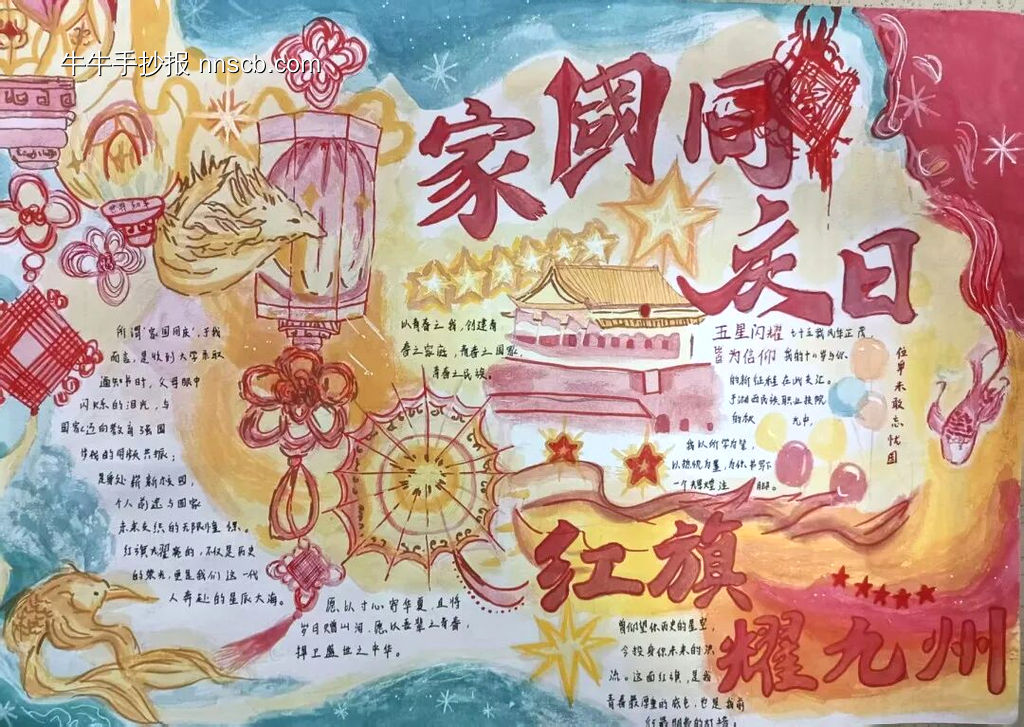 牛牛手抄报 nnscb.com
家國同
庆日
所谓“家国同庆”,于我
而言,是收到大学录取
通知书时,父母眼中
闪烁的泪光,与
国家迈向教育强国
步伐的同频共振;
是身处崭新校园,
个人前途与国家
未来交织的无限憧憬。
红旗光耀的,不仅是历史
的荣光,更是我们这一代
人奔赴的星辰大海。
以青春之我,创建青
春之家庭,青春之国家,
青春之民族。
五星闪耀
皆为信仰
七十五载风华正茂,
我的十八岁与你
的新征程在此交汇。
于湘西民族职业技院
的秋 光中,
我以所学为笔,
以热忱为墨,为你书写下
一个 注脚。
位卑未敢忘忧国
愿以寸心寄华夏,且将
岁月赠山河。愿以吾辈之青春,
捍卫盛世之中华。
红旗
耀九州
曾仰望你历史的星空,
今投身你未来的洪
流。这面红旗,是我
青春最厚重的底色,也是我前
行最明亮的灯塔。